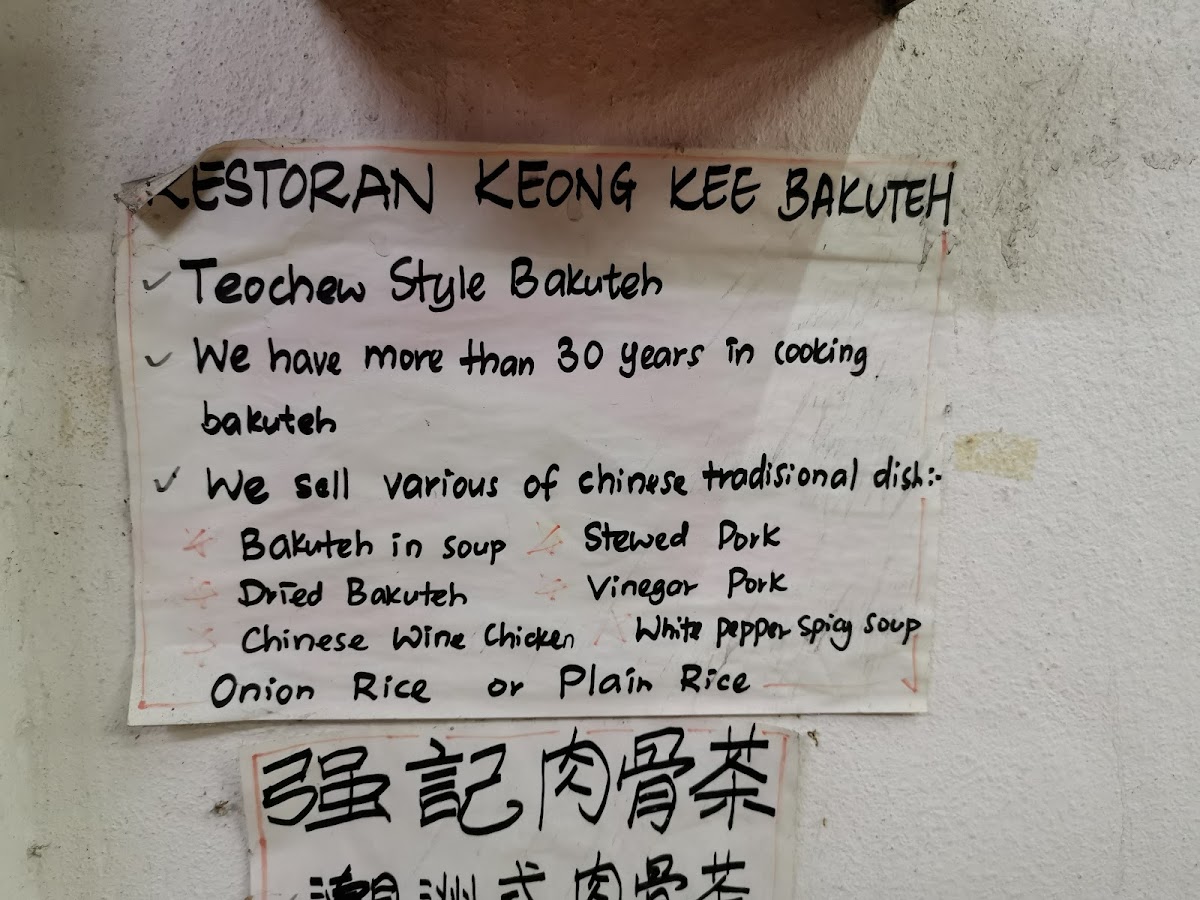 RESTORAN KEONG KEE BAKUTEH
Teochew Style Bakuteh
We have more than 30 years in cooking
bakuteh
We sell various of chinese tradisional dish:-
Bakuteh in soup Stewed Pork
Dried Bakuteh Vinegar Pork
Chinese Wine Chicken White pepper Spicy Soup
Onion Rice or Plain Rice
强記肉骨茶
潮州式肉骨茶